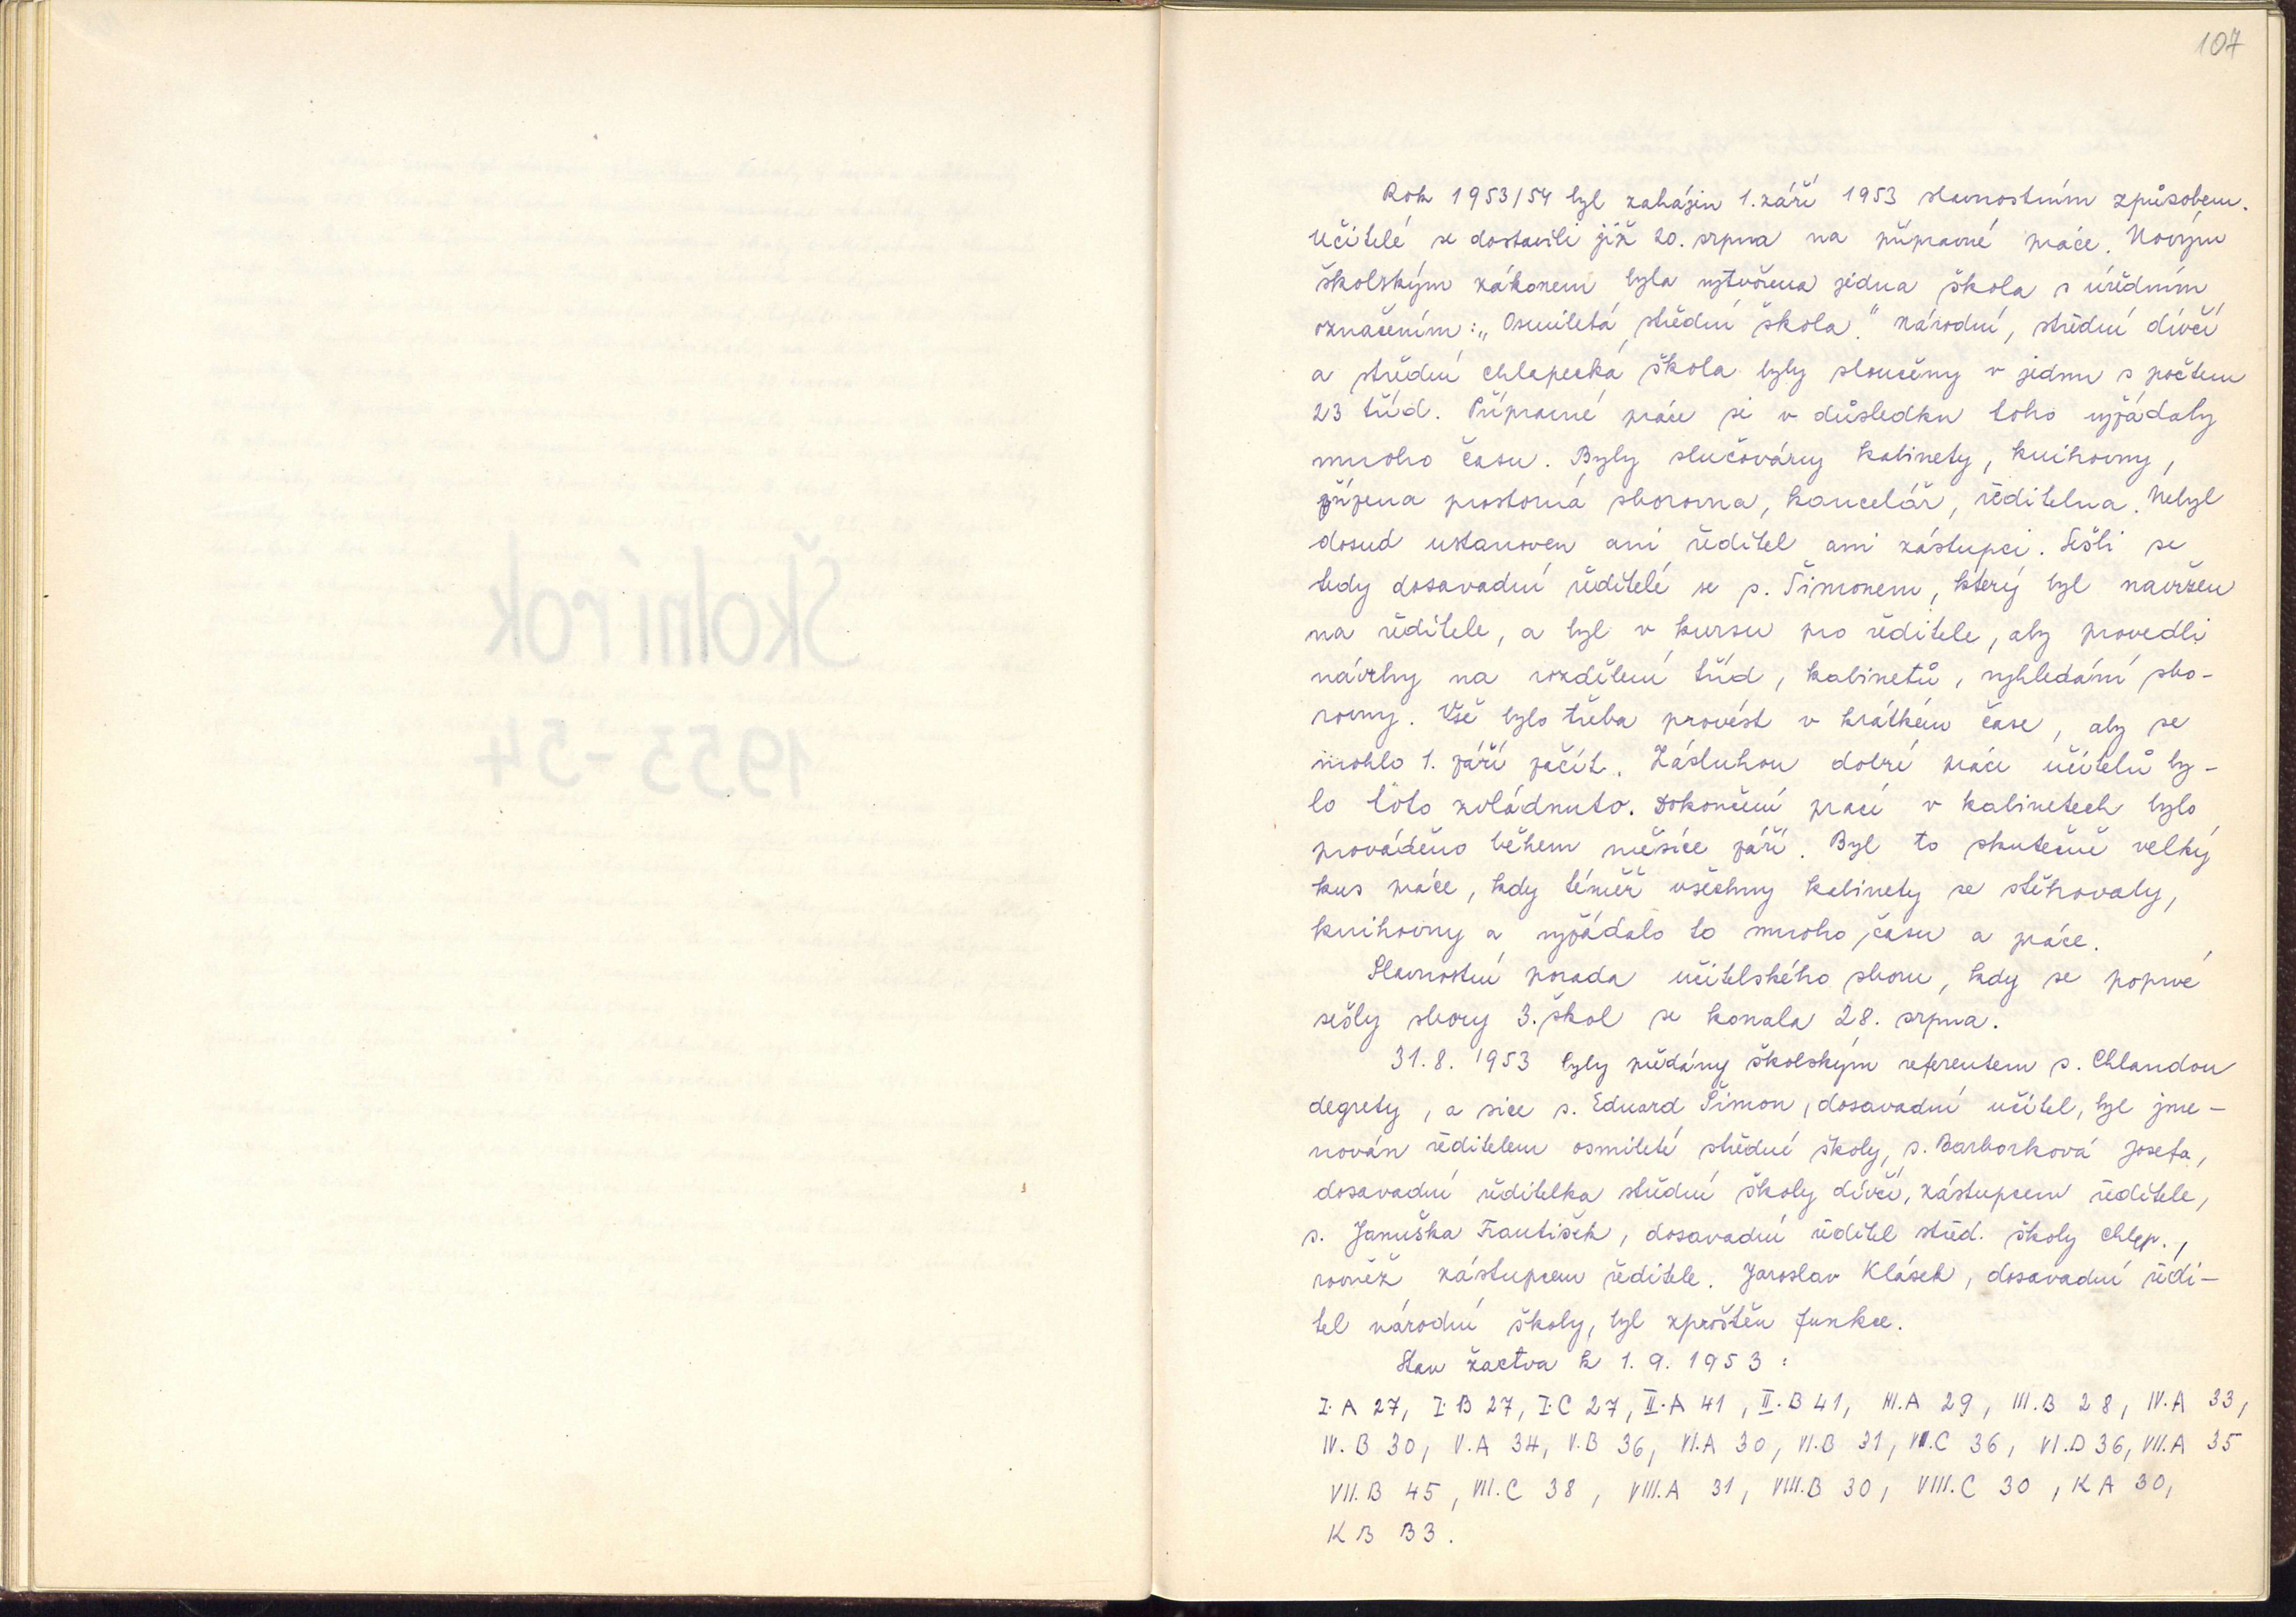 107
Rok 1953/54 byl zahájen 1. září 1953 slavnostním způsobem.
Učitelé se dostavili již 20. srpna na přípravné práce. Novým
školským zákonem byla vytvořena jedna škola s úředním
označením: „Osmiletá střední škola." Národní, střední dívčí
a střední chlapecká škola byly sloučeny v jednu s počtem
23 tříd. Přípravné práce si v důsledku toho vyžádaly
mnoho času. Byly slučovány kabinety, knihovny,
zřízena prostorná sborovna, kancelář, ředitelna. Nebyl
dosud ustanoven ani ředitel ani zástupci. Sešli se
tedy dosavadní ředitelé se s. Šimonem, který byl navržen
na ředitele, a byl v kursu pro ředitele, aby provedli
návrhy na rozdělení tříd, kabinetů, vyhledání sbo-
rovny. Vše bylo třeba provést v krátkém čase, aby se
mohlo 1. září začít. Zásluhou dobré práce učitelů by-
lo toto zvládnuto. Dokončení prací v kabinetech bylo
prováděno během měsíce září. Byl to skutečně velký
kus práce, kdy téměř všechny kabinety se stěhovaly,
knihovny a vyžádalo to mnoho času a práce.
Slavnostní porada učitelského sboru, kdy se poprvé
sešly sbory 3. škol se konala 28. srpna.
31. 8. 1953 byly předány školským referentem s. Chlandou
degrety, a sice s. Eduard Šimon, dosavadní učitel, byl jme-
nován ředitelem osmileté střední školy, s. Barborková Josefa,
dosavadní ředitelka střední školy dívčí, zástupcem ředitele,
s. Januška František, dosavadní ředitel střed. školy chlap.,
rovněž zástupcem ředitele. Jaroslav Klásek, dosavadní ředi-
tel národní školy, byl zproštěn funkce.
Stav žactva k 1. 9. 1953 :
I. A 27, I. B 27, I. C 27, II. A 41, II. B 41, III. A 29, III. B 28, IV. A 33,
IV. B 30, V. A 34, V. B 36, VI. A 30, VI. B 31, VI. C 36, VI. D 36, VII. A 35
VII. B 45, VII. C 38, VIII. A 31, VIII. B 30, VIII. C 30, K A 30,
K B 33.